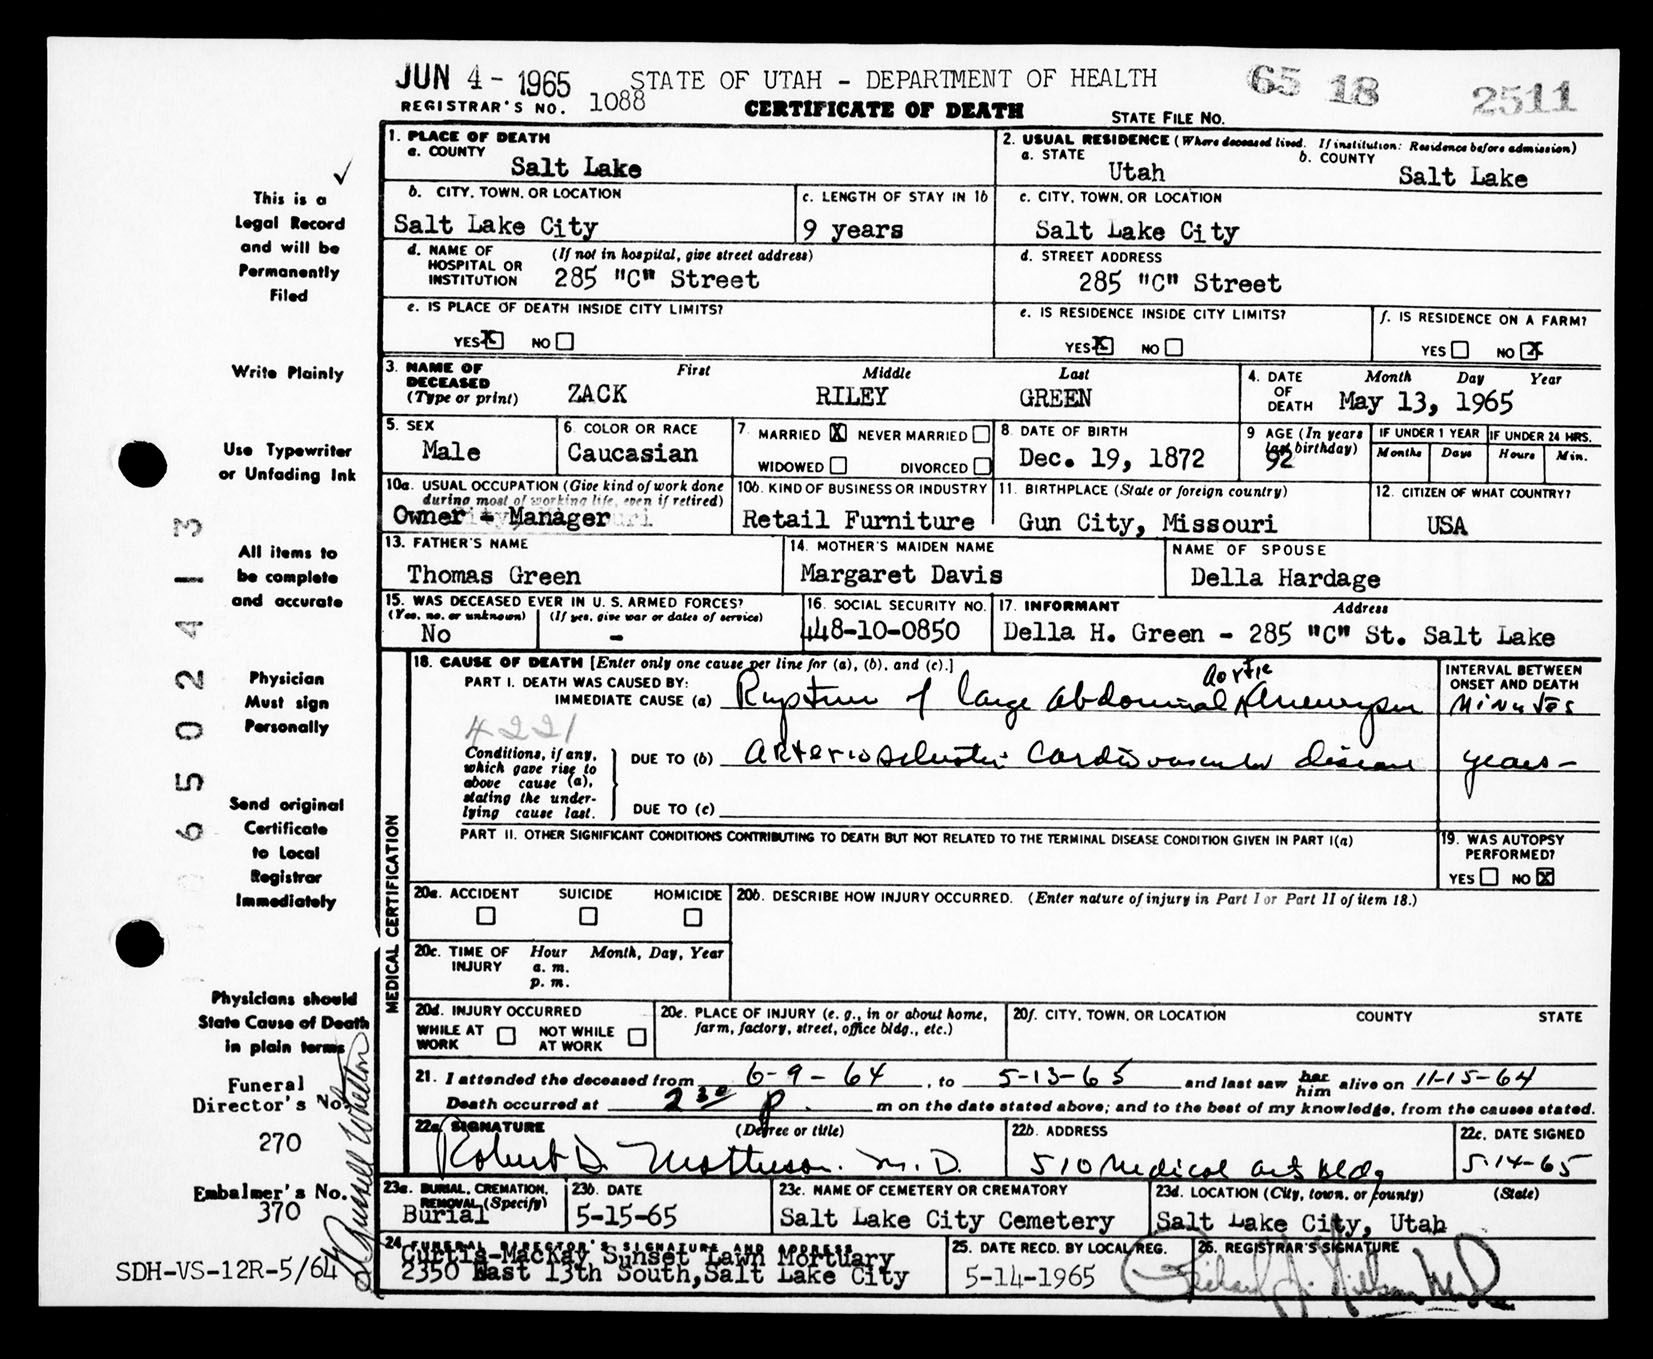 JUN 4 - 1965 STATE OF UTAH - DEPARTMENT OF HEALTH 65 18 2511
REGISTRAR'S NO. 1088 CERTIFICATE OF DEATH STATE FILE NO.
This is a
Legal Record
and will be
Permanently
Filed
Write Plainly
Use Typewriter
or Unfading Ink
All items to
be complete
and accurate
Physician
Must sign
Personally
Send original
Certificate
to Local
Registrar
Immediately
Physicians should
State Cause of Death
in plain terms
Funeral
Director's No.
270
Embalmer's No.
370
SDH-VS-12R-5/64
6502413
1. PLACE OF DEATH
a. COUNTY
Salt Lake
2. USUAL RESIDENCE (Where deceased lived. If institution: Residence before admission)
a. STATE b. COUNTY
Utah Salt Lake
b. CITY, TOWN, OR LOCATION
Salt Lake City
c. LENGTH OF STAY IN 1b
9 years
c. CITY, TOWN, OR LOCATION
Salt Lake City
d. NAME OF HOSPITAL OR INSTITUTION (If not in hospital, give street address)
285 "C" Street
d. STREET ADDRESS
285 "C" Street
e. IS PLACE OF DEATH INSIDE CITY LIMITS?
YES X NO
e. IS RESIDENCE INSIDE CITY LIMITS?
YES X NO
f. IS RESIDENCE ON A FARM?
YES NO X
3. NAME OF DECEASED (Type or print) First Middle Last
ZACK RILEY GREEN
4. DATE OF DEATH Month Day Year
May 13, 1965
5. SEX
Male
6. COLOR OR RACE
Caucasian
7. MARRIED X NEVER MARRIED
WIDOWED DIVORCED
8. DATE OF BIRTH
Dec. 19, 1872
9 AGE (In years last birthday)
92
IF UNDER 1 YEAR IF UNDER 24 HRS.
Months Days Hours Min.
10a. USUAL OCCUPATION (Give kind of work done during most of working life, even if retired)
Owner - Manager
10b. KIND OF BUSINESS OR INDUSTRY
Retail Furniture
11. BIRTHPLACE (State or foreign country)
Gun City, Missouri
12. CITIZEN OF WHAT COUNTRY?
USA
13. FATHER'S NAME
Thomas Green
14. MOTHER'S MAIDEN NAME
Margaret Davis
NAME OF SPOUSE
Della Hardage
15. WAS DECEASED EVER IN U. S. ARMED FORCES?
(Yes, no, or unknown) (If yes, give war or dates of service)
No -
16. SOCIAL SECURITY NO.
448-10-0850
17. INFORMANT Address
Della H. Green - 285 "C" St. Salt Lake
MEDICAL CERTIFICATION
18. CAUSE OF DEATH [Enter only one cause per line for (a), (b), and (c).]
PART I. DEATH WAS CAUSED BY:
IMMEDIATE CAUSE (a) Rupture of large abdominal aortic Aneurysm
INTERVAL BETWEEN ONSET AND DEATH
Minutes
4221
Conditions, if any, which gave rise to above cause (a), stating the underlying cause last.
DUE TO (b) Arteriosclerotic Cardiovascular disease years -
DUE TO (c)
PART II. OTHER SIGNIFICANT CONDITIONS CONTRIBUTING TO DEATH BUT NOT RELATED TO THE TERMINAL DISEASE CONDITION GIVEN IN PART I(a)
19. WAS AUTOPSY PERFORMED?
YES NO X
20a. ACCIDENT SUICIDE HOMICIDE
20b. DESCRIBE HOW INJURY OCCURRED. (Enter nature of injury in Part I or Part II of item 18.)
20c. TIME OF INJURY Hour Month, Day, Year
a. m.
p. m.
20d. INJURY OCCURRED
WHILE AT WORK NOT WHILE AT WORK
20e. PLACE OF INJURY (e. g., in or about home, farm, factory, street, office bldg., etc.)
20f. CITY, TOWN, OR LOCATION COUNTY STATE
21. I attended the deceased from 6-9-64, to 5-13-65 and last saw her him alive on 11-15-64
Death occurred at 2 30 P. m on the date stated above; and to the best of my knowledge, from the causes stated.
22a. SIGNATURE (Degree or title)
Robert D. M.D.
22b. ADDRESS
510 Medical Arts Bldg
22c. DATE SIGNED
5-14-65
23a. BURIAL, CREMATION, REMOVAL (Specify)
Burial
23b. DATE
5-15-65
23c. NAME OF CEMETERY OR CREMATORY
Salt Lake City Cemetery
23d. LOCATION (City, town, or county) (State)
Salt Lake City, Utah
24 FUNERAL DIRECTOR'S SIGNATURE AND ADDRESS
Curtis-MacKay Sunset Lawn Mortuary
2350 East 13th South, Salt Lake City
25. DATE RECD. BY LOCAL REG.
5-14-1965
26. REGISTRAR'S SIGNATURE